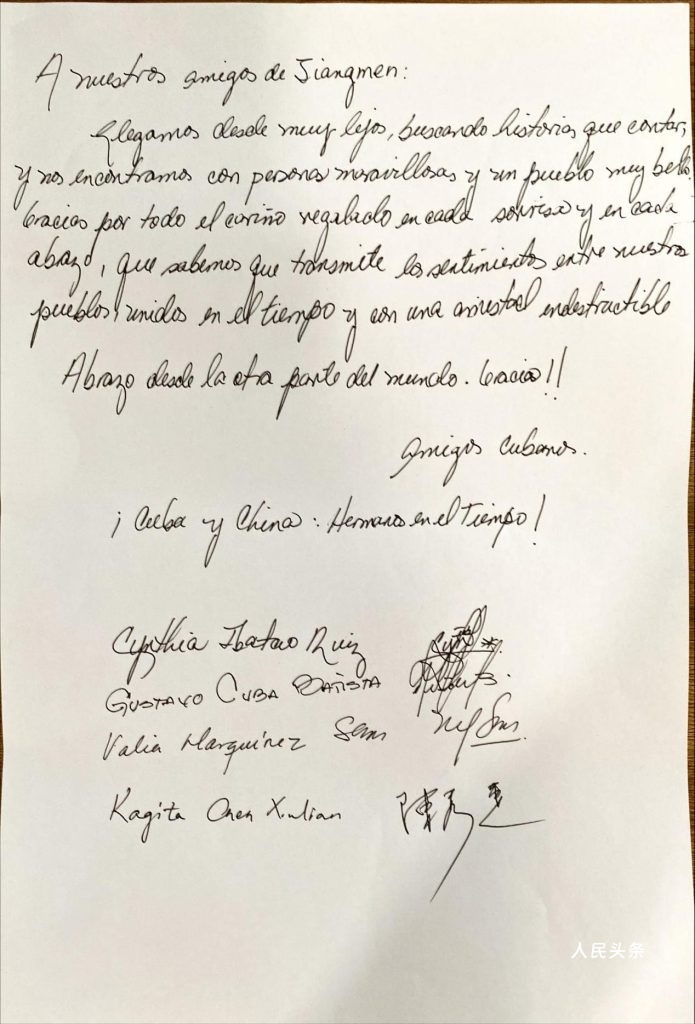 A nuestros amigos de Jiangmen:
Llegamos desde muy lejos, buscando historias que contar,
y nos encontramos con personas maravillosas y un pueblo muy bello.
Gracias por todo el cariño regalado en cada sonrisa y en cada
abrazo, que sabemos que transmite los sentimientos entre nuestros
pueblos, unidos en el tiempo y con una amistad indestructible
Abrazo desde la otra parte del mundo. Gracias!!
Amigos cubanos.
¡Cuba y China: Hermanos en el Tiempo!
Cynthia Ruiz
GUSTAVO CUBA BATISTA
Valia Marquínez Sam
Kagita Chen Xiulian
陳
人民头条